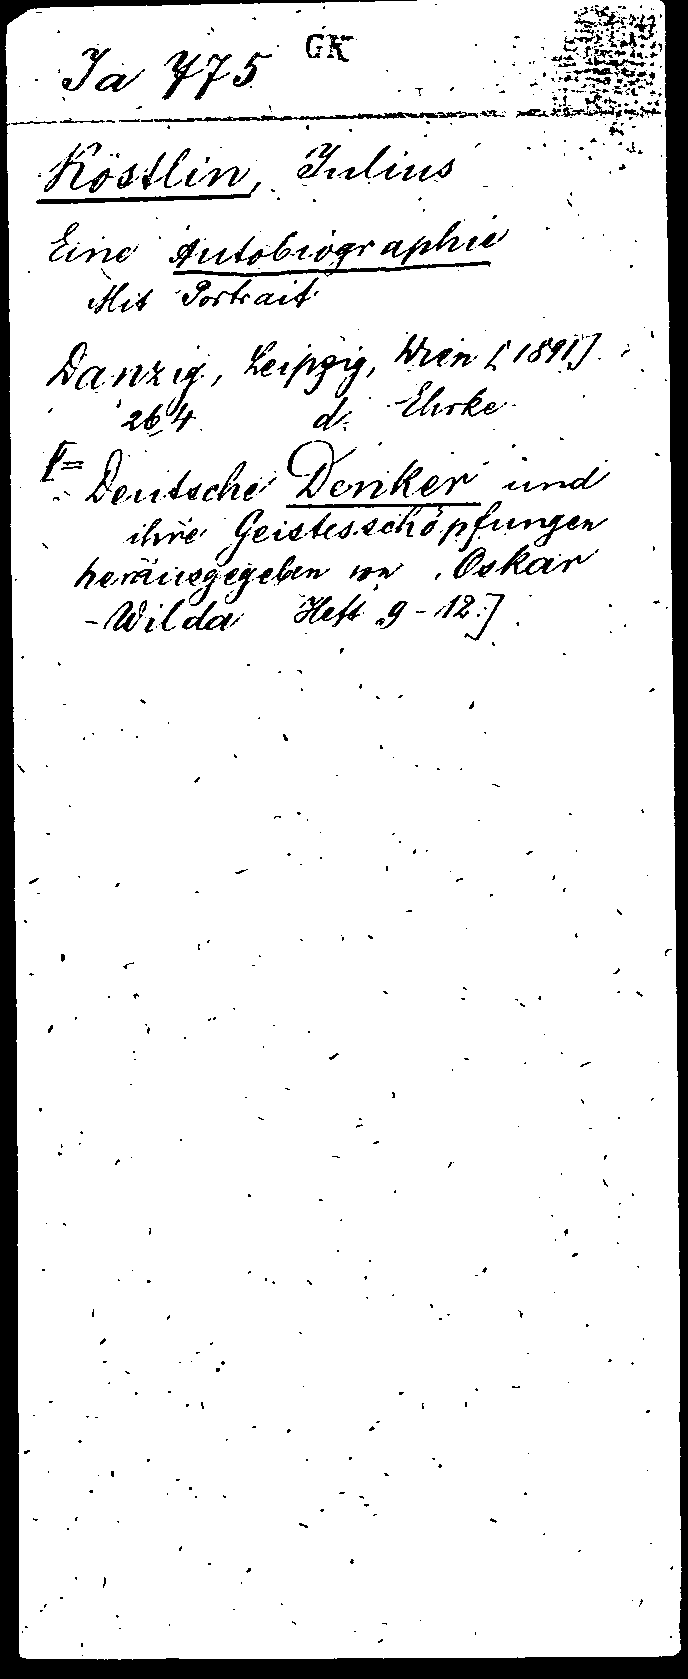 Ia 775 GK
Köstlin, Julius
Eine Autobiographie
Mit Portrait
Danzig, Leipzig, Wien [1891]
264 d. Ehrke
[= Deutsche Denker und
ihre Geistesschöpfungen
herausgegeben von Oskar
Wilda Heft 9-12.]